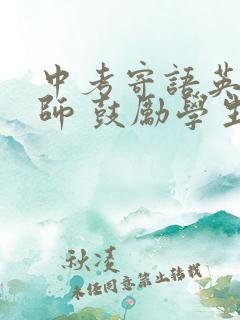 中考寄語英
師 鼓勵學生
秋凌
未经同意禁止转载